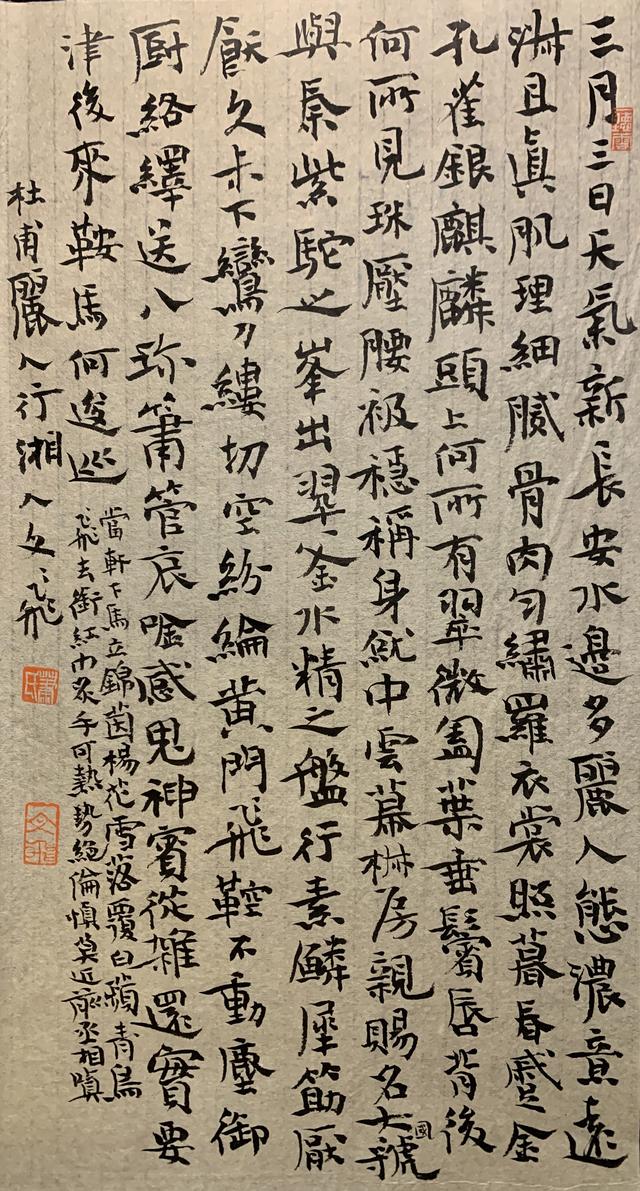 三月三日天氣新長安水邊多麗人態濃意遠
淑且真肌理細膩骨肉勻繡羅衣裳照暮春蹙金
孔雀銀麒麟頭上何所有翠微㔩葉垂鬢唇背後
何所見珠壓腰衱穩稱身就中雲幕椒房親賜名大國虢
與秦紫駝之峯出翠釜水精之盤行素鱗犀筯厭
飫久未下鸞刀縷切空紛綸黃門飛鞚不動塵御
廚絡繹送八珍簫管哀吟感鬼神賓從雜遝實要
津後來鞍馬何逡巡
當軒下馬立錦茵楊花雪落覆白蘋青鳥
飛去銜紅巾炙手可熱勢絕倫慎莫近前丞相嗔
杜甫麗人行湘人文飛
蕭氏
文飛